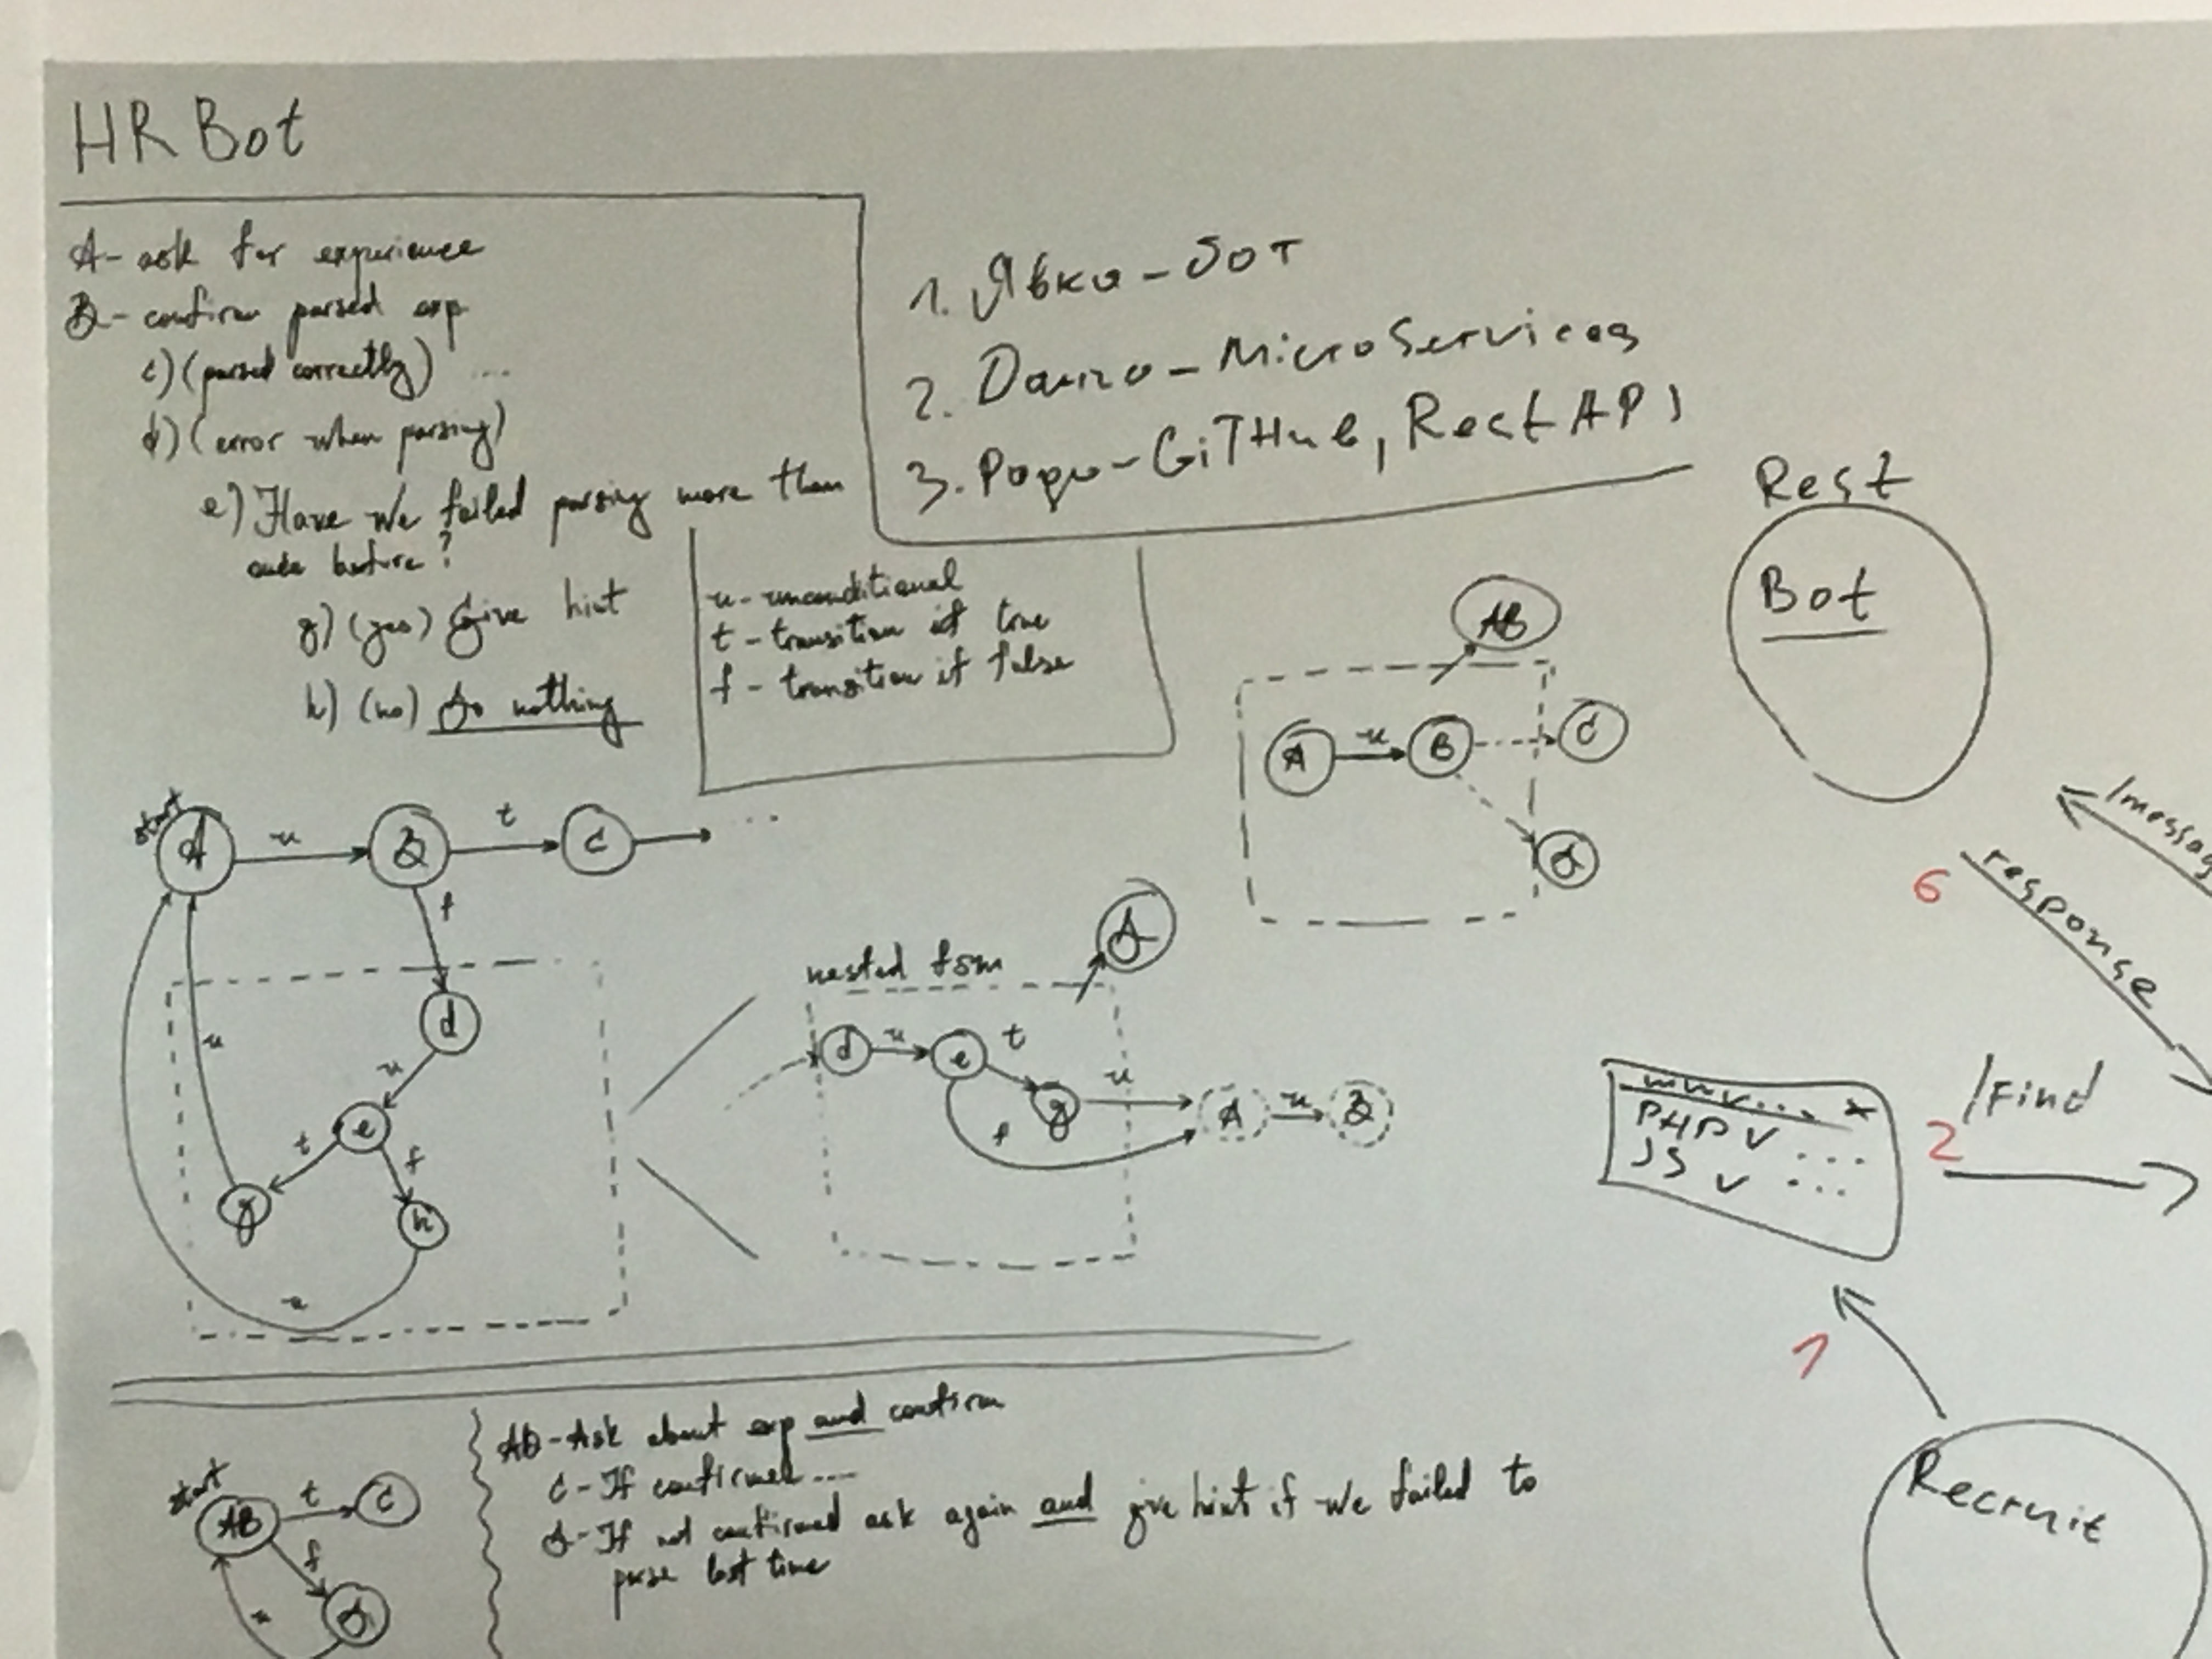 HR Bot
A- ask for experience
B- confirm parsed exp
c) (parsed correctly) ...
d) (error when parsing)
e) Have we failed parsing more than
once before?
g) (yes) Give hint
h) (no) Do nothing
1. Явко - бот
2. Данчо - MicroServices
3. Родо - GiTHub, Rest API
u - unconditional
t - transition if true
f - transition if false
Rest
Bot
AB
A u B C
start
A u B t C ...
f
d
u
u
e
t f
g h
u
nested fsm
d u e t
g u A u B
f
/messag
6 response
/Find
2
PHP v ...
JS v ...
1
Recruit
AB - Ask about exp and confirm
C - If confirmed ...
If not confirmed ask again and give hint if we failed to
parse last time
start
AB t C
f
u